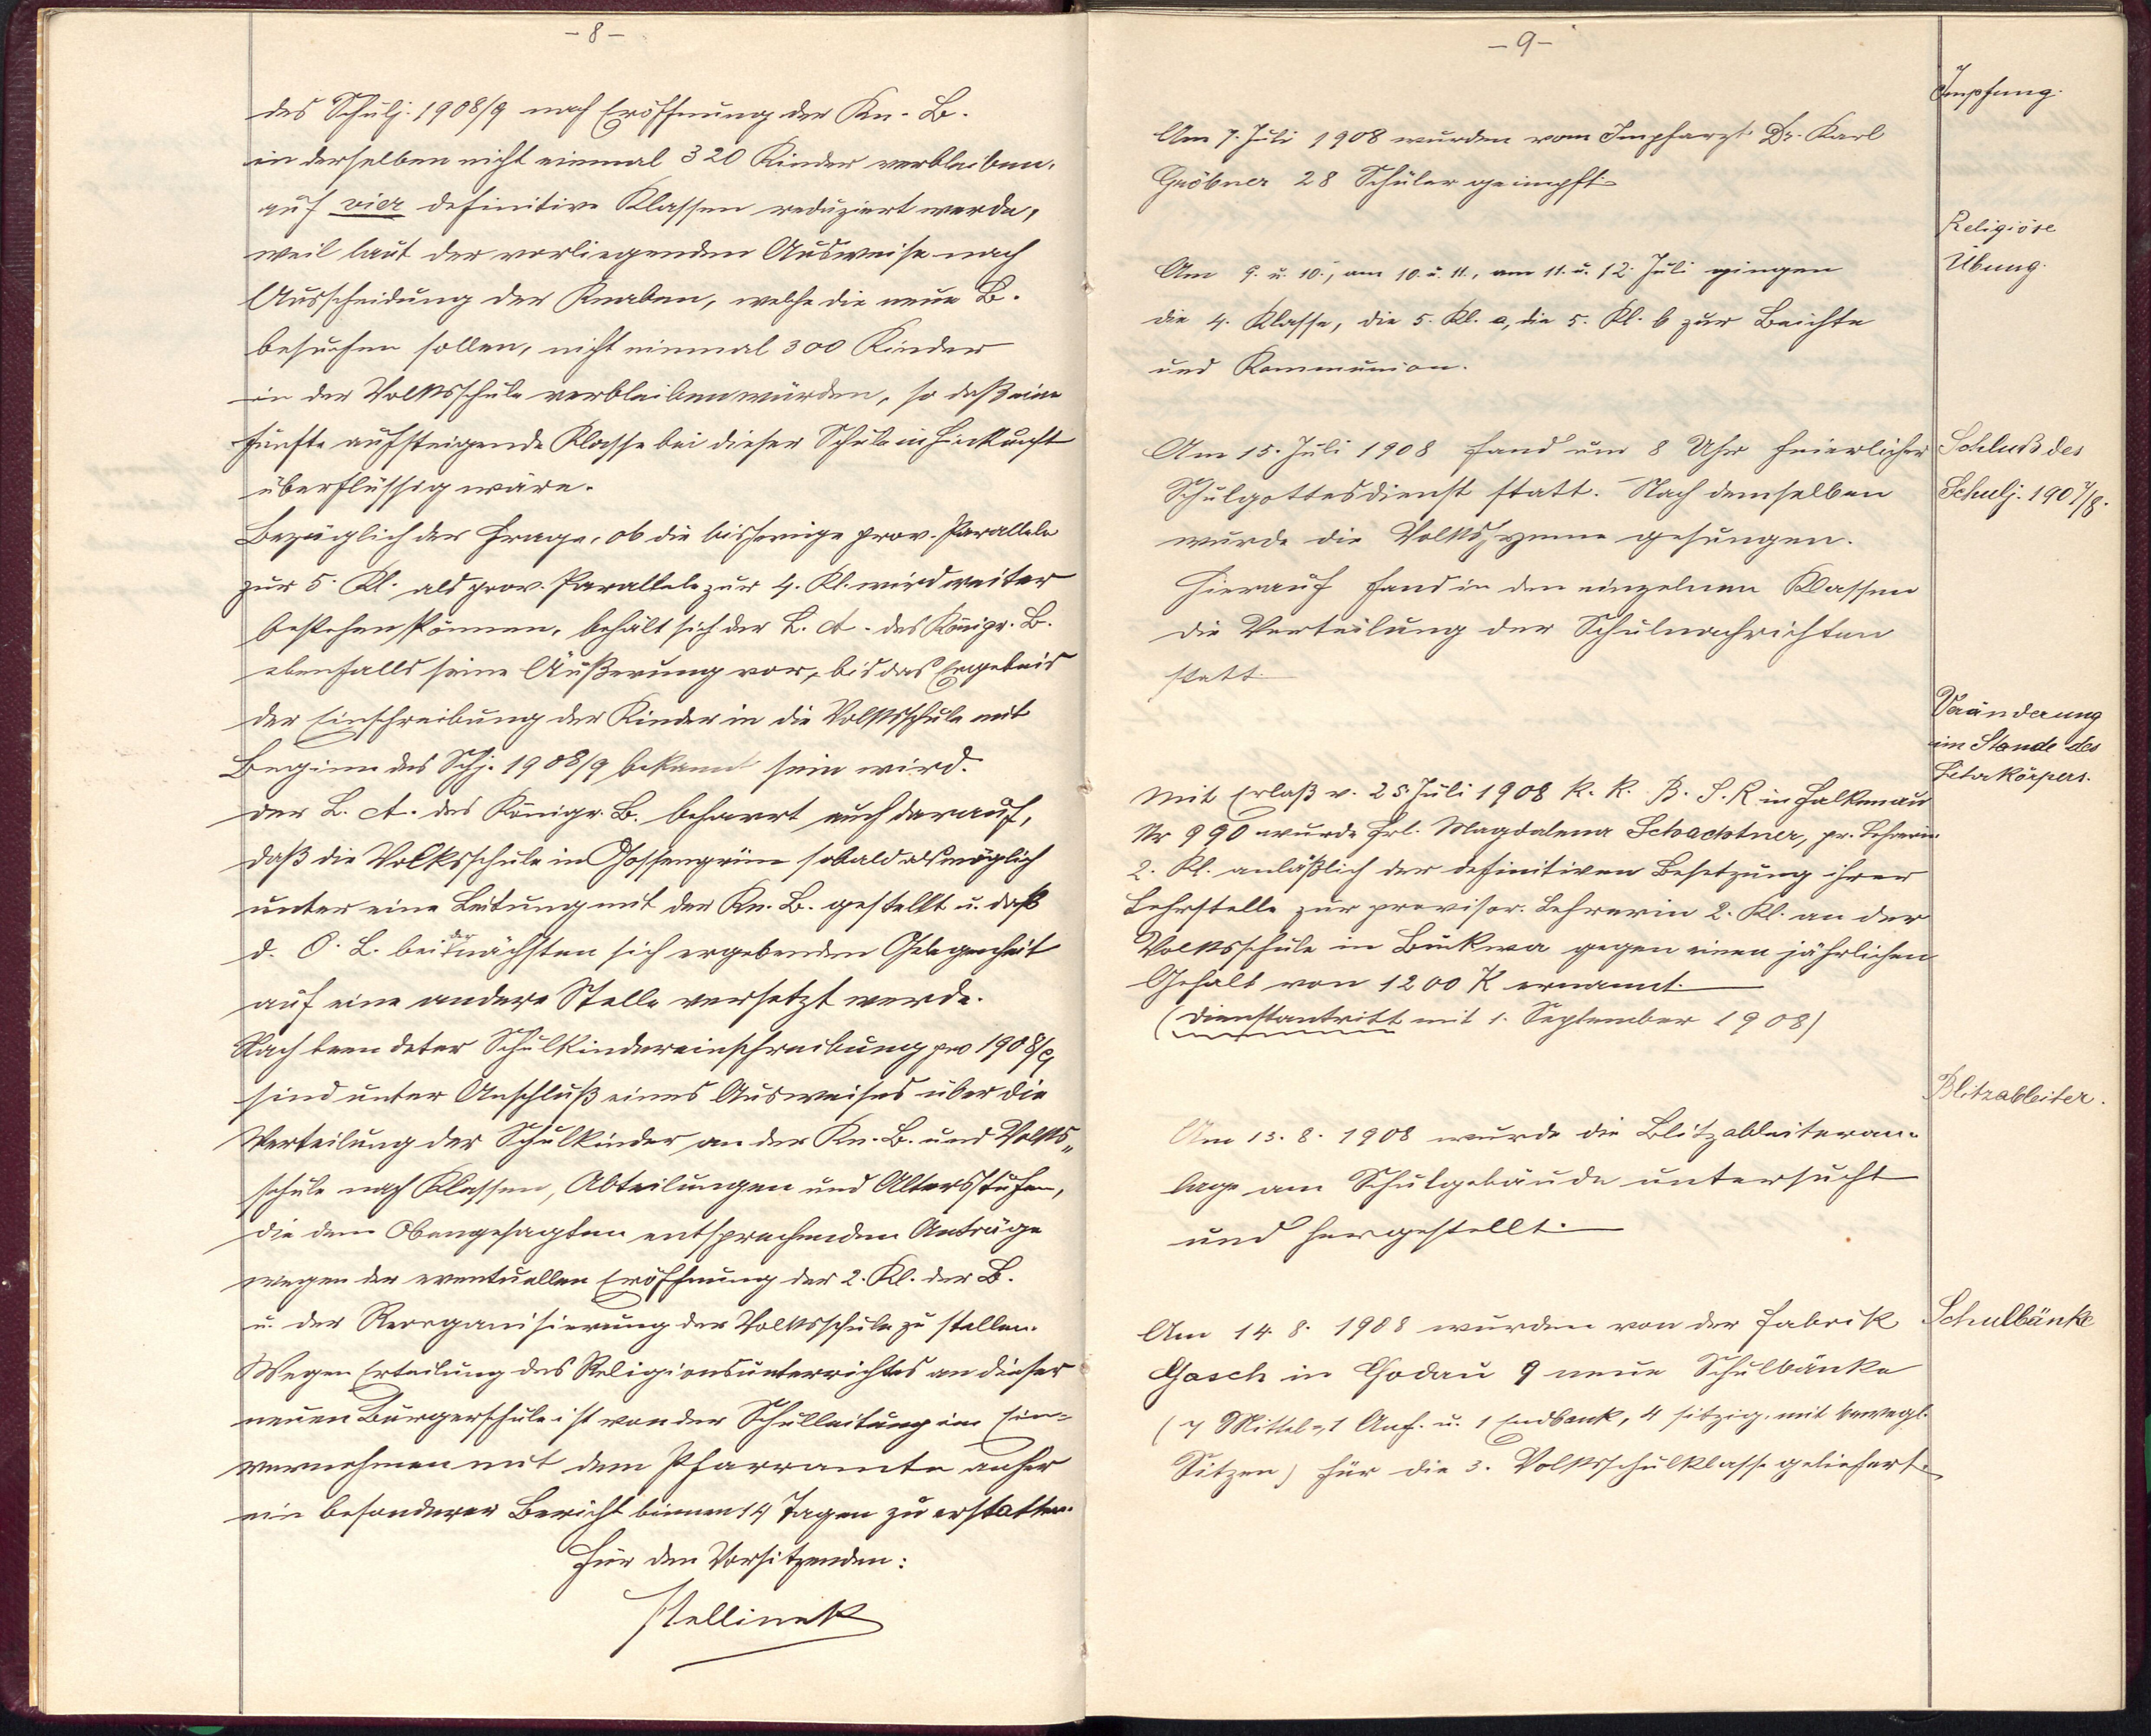 - 8 -
des Schulj. 1908/9 nach Eröffnung der Kn. B.
in derselben nicht einmal 320 Kinder verbleiben,
auf vier definitive Klassen reduziert werde,
weil laut der vorliegenden Ausweise nach
Ausscheidung der Knaben, welche die neue B.
besuchen sollen, nicht einmal 300 Kinder
in der Volksschule verbleiben würden, so daß eine
fünfte aufsteigende Klasse bei dieser Schule in Hinkunft
überflüssig wäre.
Bezüglich der Frage, ob die bisherige prov. Parallele
zur 5. Kl. als prov. Parallele zur 4. Kl. wird weiter
bestehen können, behält sich der L. A. des Königr. B.
ebenfalls seine Äußerung vor, bis das Ergebnis
der Einschreibung der Kinder in die Volksschule mit
Beginn des Schj. 1908/9 bekannt sein wird.
Der L. A. des Königr. B. beharrt auch darauf,
daß die Volksschule in Gossengrün sobald als möglich
unter eine Leitung mit der Kn. B. gestellt u. daß
d. O. L. bei der nächsten sich ergebenden Gelegenheit
auf eine andere Stelle versetzt werde.
Nach beendeter Schulkindereinschreibung pro 1908/9
sind unter Anschluß eines Ausweises über die
Verteilung der Schulkinder an der Kn. B. und Volks„
schule nach Klassen, Abteilungen und Altersstufen,
die dem Obengesagten entsprechenden Anträge
wegen der eventuellen Eröffnung der 2. Kl. der B.
u. der Reorganisierung der Volksschule zu stellen.
Wegen Erteilung des Religionsunterrichtes an dieser
neuen Bürgerschule ist von der Schulleitung im Ein-
vernehmen mit dem Pfarramte anher
ein besonderer Bericht binnen 14 Tagen zu erstatten.
Für den Vorsitzenden:
Stellinek
- 9 -
Impfung.
Am 7. Juli 1908 wurden vom Impfarzt Dr. Karl
Gröbner 28 Schüler geimpft.
Religiöse
Übung.
Am 9. u. 10., am 10. u. 11., am 11. u. 12. Juli gingen
die 4. Klasse, die 5. Kl. a, die 5. Kl. b zur Beichte
und Kommunion.
Schluß des
Schulj. 1907/8.
Am 15. Juli 1908 fand um 8 Uhr feierlicher
Schulgottesdienst statt. Nach demselben
wurde die Volkshymne gesungen.
Hierauf fand in den einzelnen Klassen
die Verteilung der Schulnachrichten
statt.
Veränderung
im Stande des
Lehrkörpers.
Mit Erlaß v. 25. Juli 1908 k. k. B. S. R. in Falkenau
Nr 990 wurde Frl. Magdalena Schachtner, pr. Lehrerin
2. Kl. anläßlich der definitiven Besetzung ihrer
Lehrstelle zur provisor. Lehrerin 2. Kl. an der
Volksschule in Bukwa gegen einen jährlichen
Gehalt von 1200 K ernannt.
(Dienstantritt mit 1. September 1908)
Blitzableiter.
Am 13. 8. 1908 wurde die Blitzableiteran-
lage am Schulgebäude untersucht
und hergestellt.
Schulbänke
Am 14. 8. 1908 wurden von der Fabrik
Gasch in Chodau 9 neue Schulbänke
(7 Mittel-, 1 Anf. u. 1 Endbank, 4 sitzig, mit bewegl.
Sitzen) für die 3. Volksschulklasse geliefert.